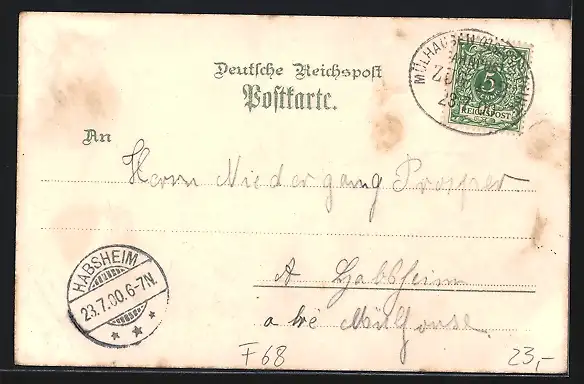 Deutsche Reichspost
Postkarte.
MÜLHAUSEN
ZUG
23 7 00
5
REICHSPOST
An
Herrn Niedergang Prosper
A Habsheim
Mülhouse.
HABSHEIM
23.7.00.6-7N.
F68
23,-